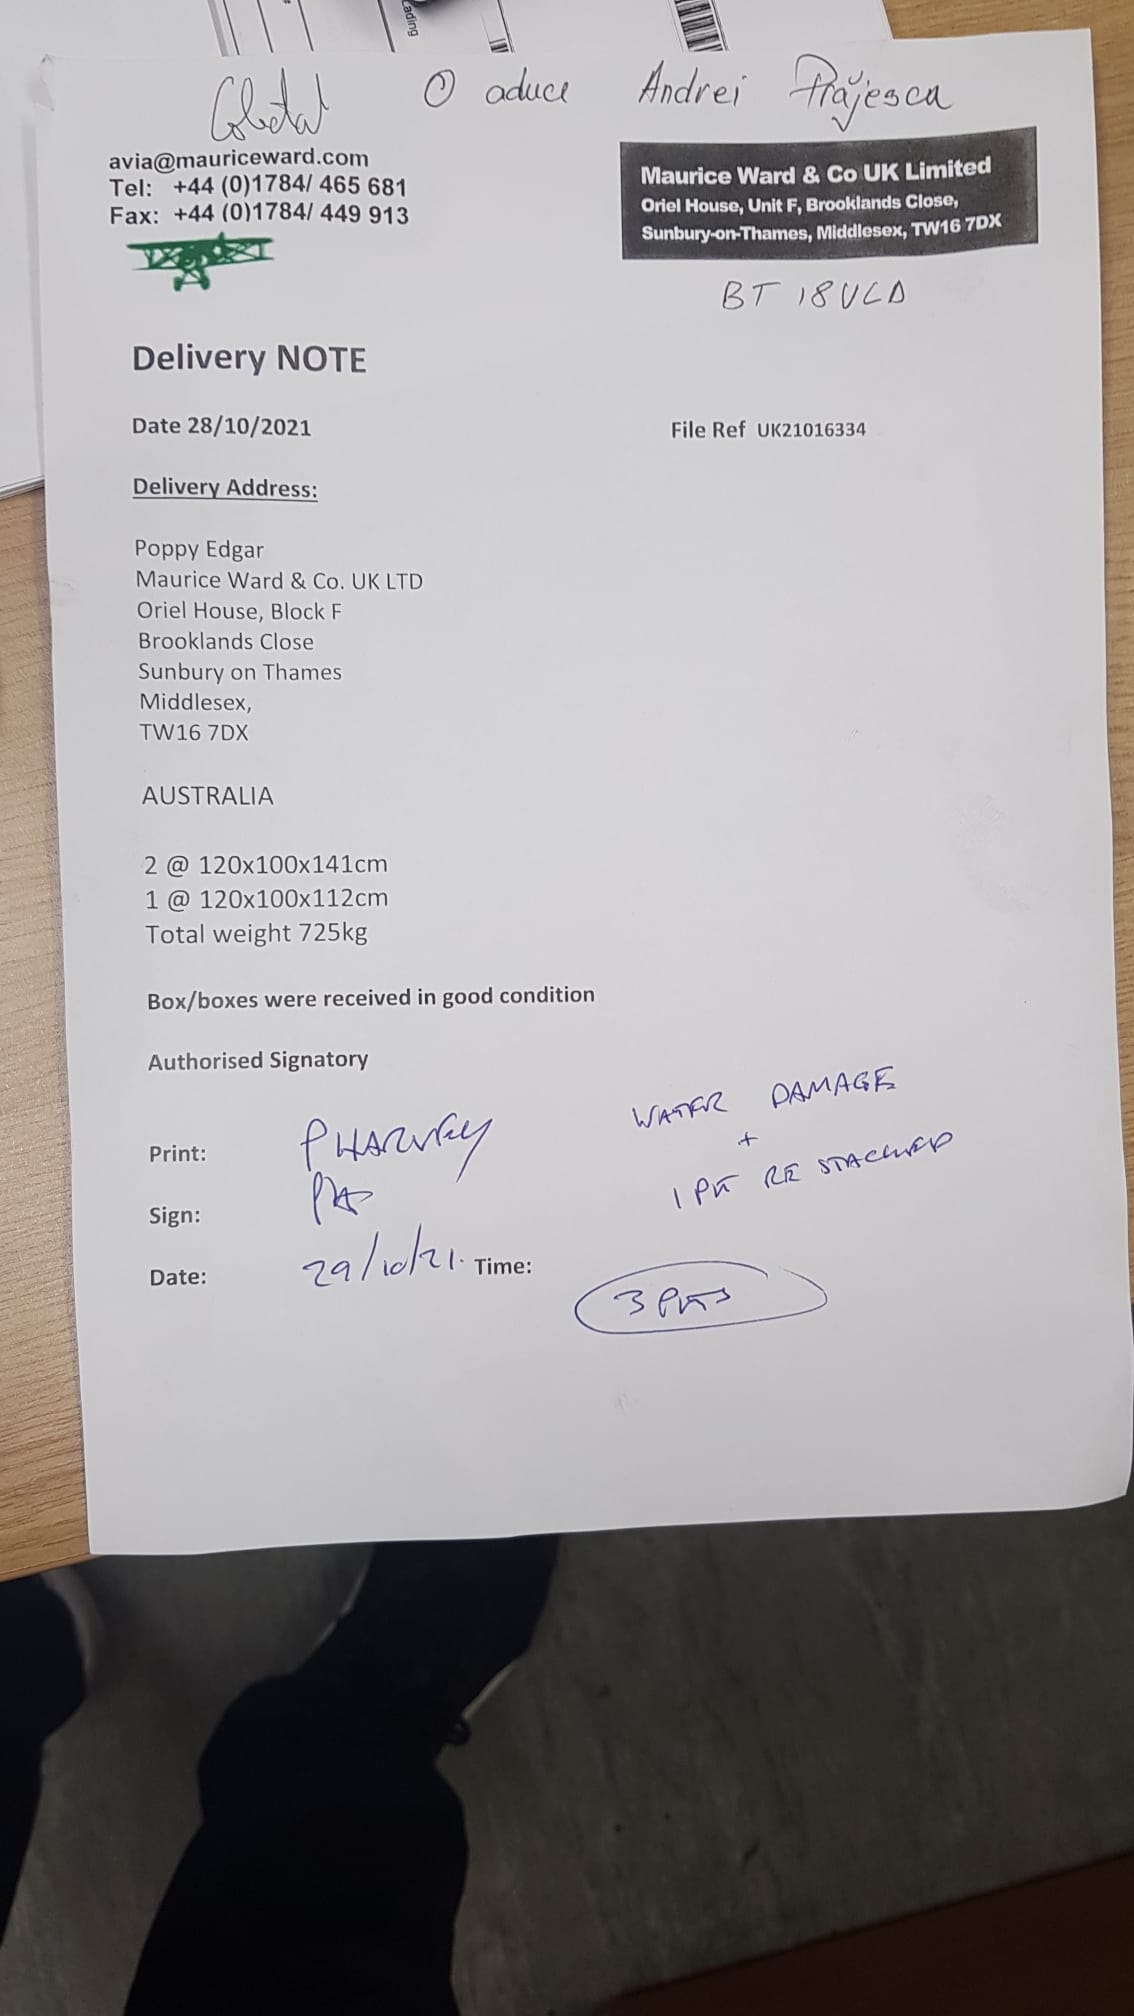 ading
Global O aduce Andrei Prăjescu
avia@mauriceward.com
Tel: +44 (0)1784/ 465 681
Fax: +44 (0)1784/ 449 913
Maurice Ward & Co UK Limited
Oriel House, Unit F, Brooklands Close,
Sunbury-on-Thames, Middlesex, TW16 7DX
BT 18 VLD
Delivery NOTE
Date 28/10/2021
File Ref UK21016334
Delivery Address:
Poppy Edgar
Maurice Ward & Co. UK LTD
Oriel House, Block F
Brooklands Close
Sunbury on Thames
Middlesex,
TW16 7DX
AUSTRALIA
2 @ 120x100x141cm
1 @ 120x100x112cm
Total weight 725kg
Box/boxes were received in good condition
Authorised Signatory
Print: P HARVEY
WATER DAMAGE
+
1 PKT RE STACKED
Sign:
Date: 29/10/21. Time:
3 PKTS